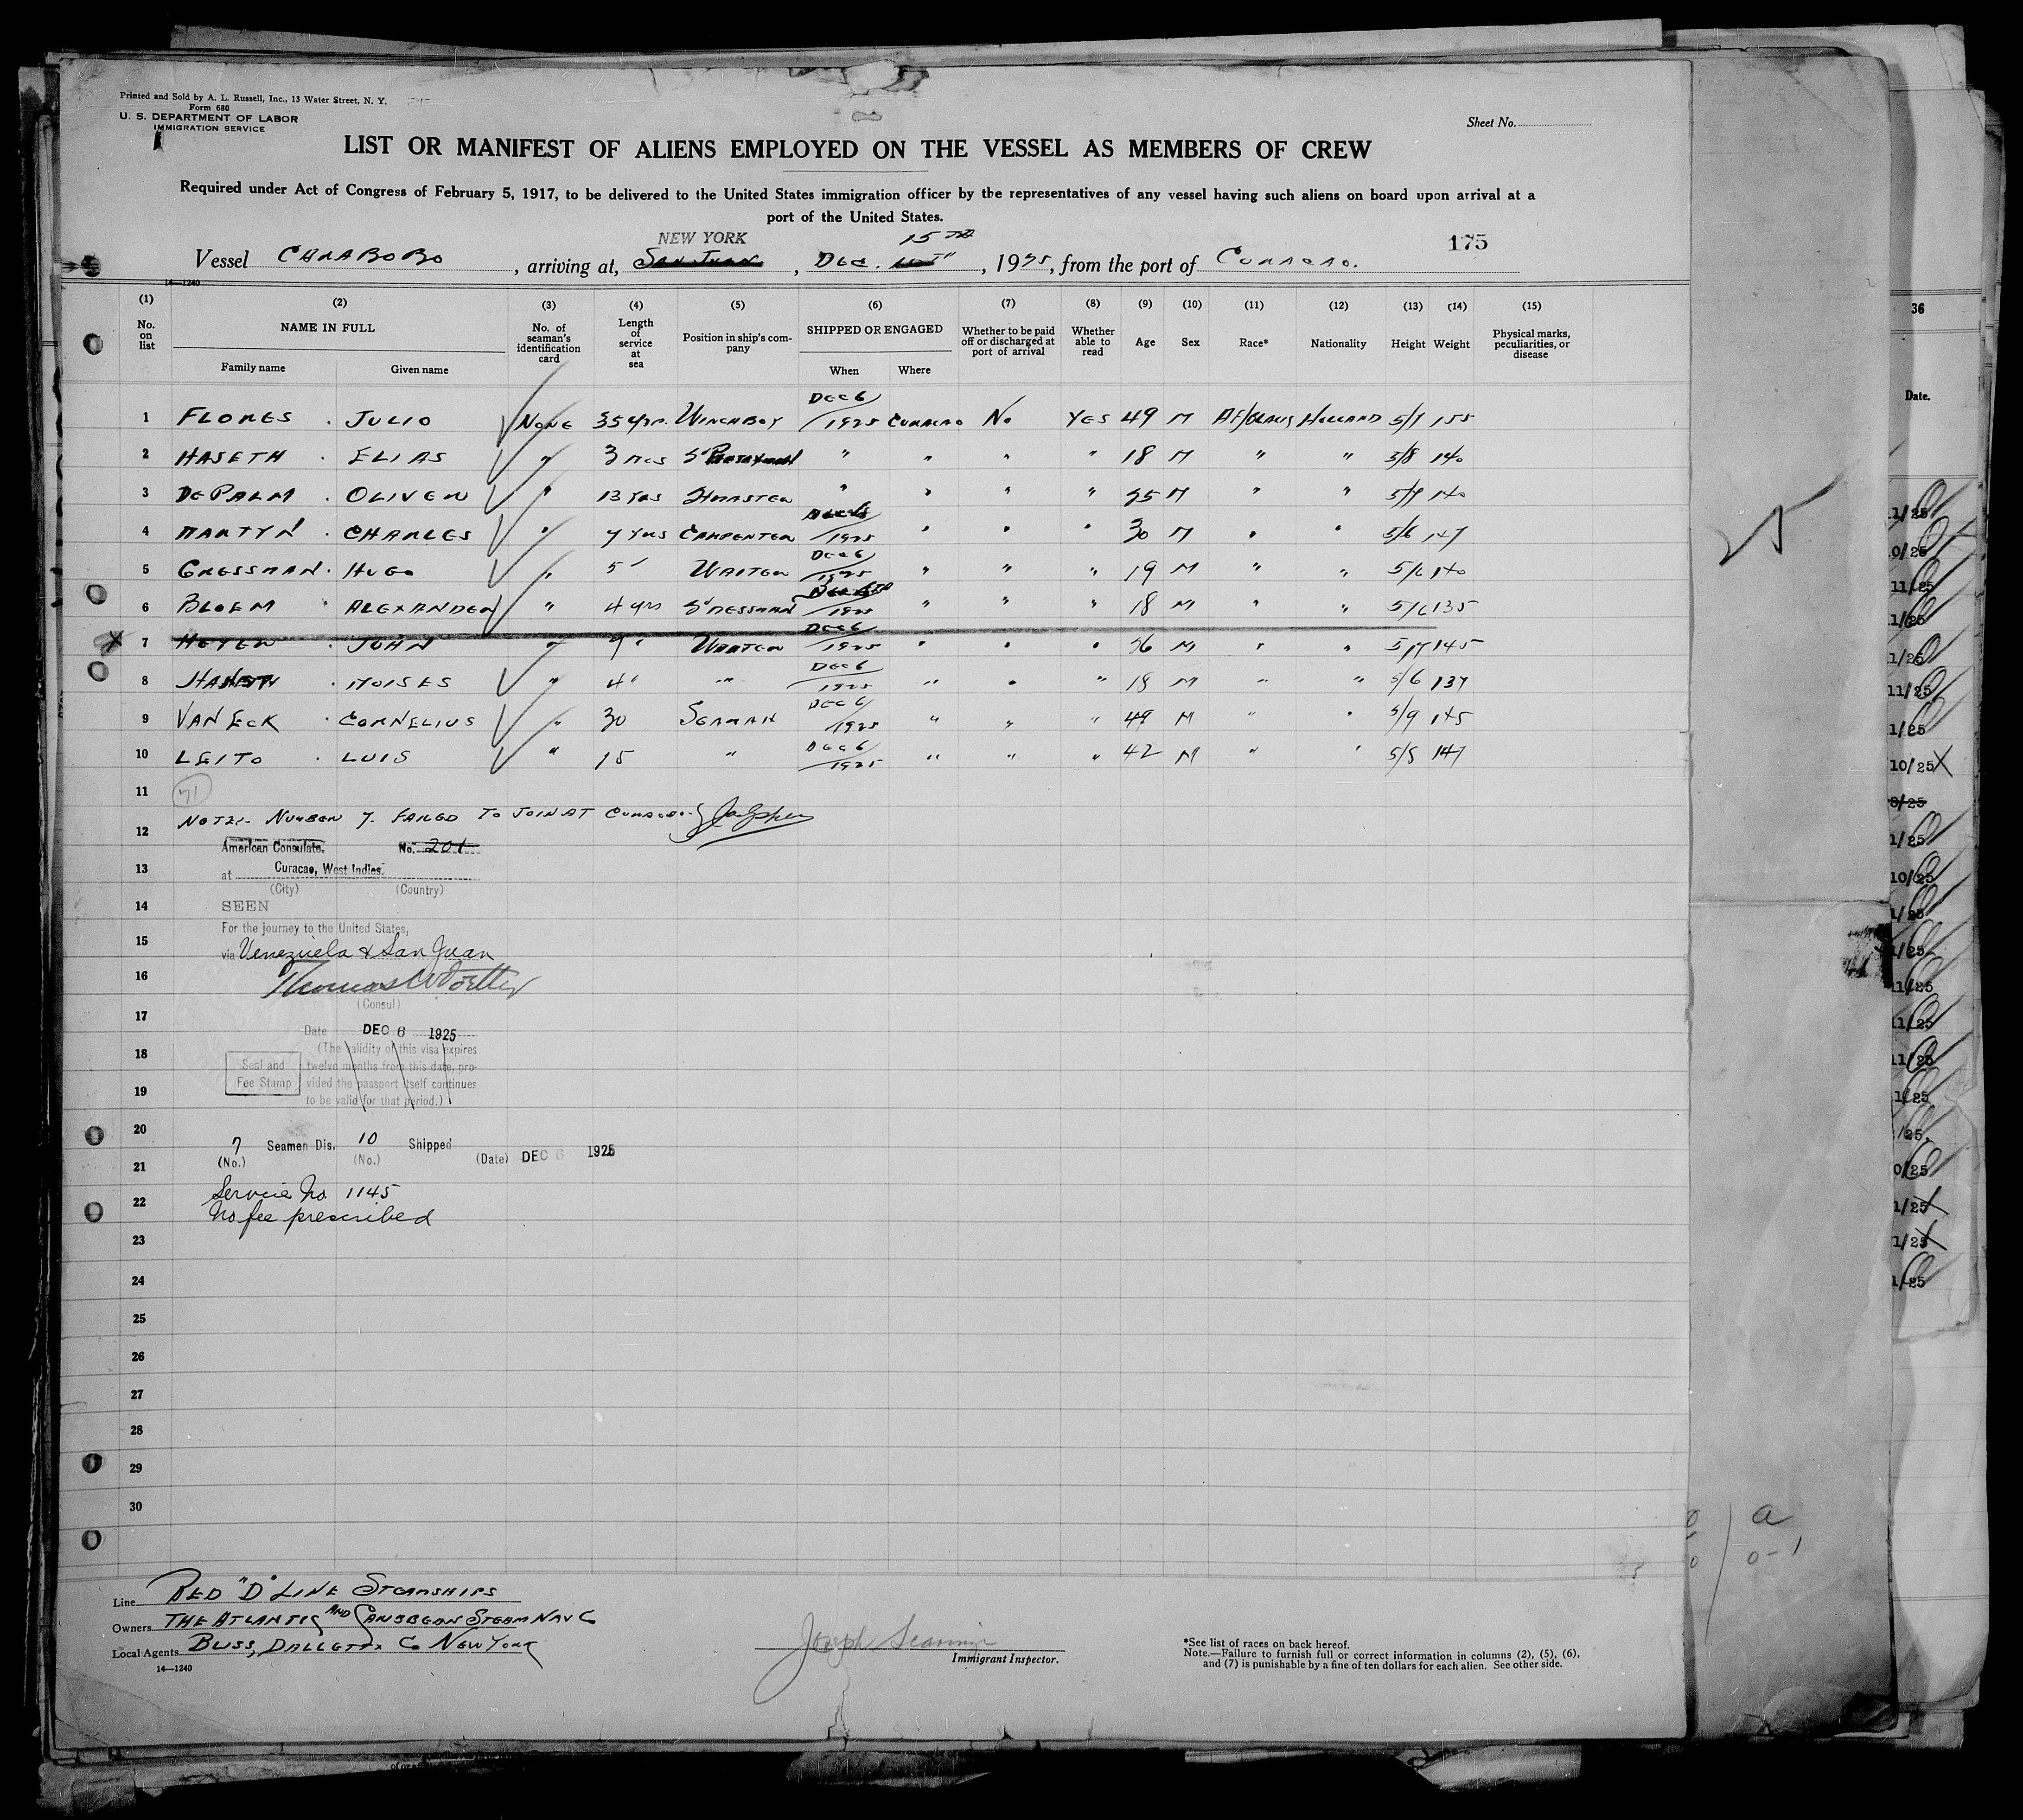 Printed and Sold by A. L. Russell, Inc., 13 Water Street, N. Y.
Form 680
U. S. DEPARTMENT OF LABOR
IMMIGRATION SERVICE
Sheet No.
LIST OR MANIFEST OF ALIENS EMPLOYED ON THE VESSEL AS MEMBERS OF CREW
Required under Act of Congress of February 5, 1917, to be delivered to the United States immigration officer by the representatives of any vessel having such aliens on board upon arrival at a
port of the United States.
NEW YORK 15TH 175
Vessel CARABOBO, arriving at, SAN JUAN, DEC., 1925, from the port of CURACAO.
14—1240
(1) (2) (3) (4) (5) (6) (7) (8) (9) (10) (11) (12) (13) (14) (15)
No. on list NAME IN FULL Family name Given name No. of seaman's identification card Length of service at sea Position in ship's company SHIPPED OR ENGAGED When Where Whether to be paid off or discharged at port of arrival Whether able to read Age Sex Race* Nationality Height Weight Physical marks, peculiarities, or disease
1 FLORES JULIO NONE 35 yrs. WINCHBOY DEC 6/1925 CURACAO No YES 49 M HOLLAND 5/7 155
2 HASETH ELIAS " 3 " " " " 18 M " " 5/8 140
3 DE PALM OLIVER " 13 YRS " " " " M " " 5/7 140
4 MARTYN CHARLES " 7 YRS CARPENTER DEC 6/1925 " " " 30 M " " 5/6 147
5 GRESSMAN HUGO " 5 " WAITER DEC 6/1925 " " " 19 M " " 5/6 140
6 BLOEM ALEXANDER " 4 yrs S'DESSMAN 1925 " " " 18 M " " 5/6 135
7 HEYER JOHN " 9 " WAITER DEC 6/1925 " " " 36 M " " 5/7 145
8 HASETH MOISES " 4 " " DEC 6/1925 " " " 18 M " " 5/6 137
9 VAN ECK CORNELIUS " 30 SEAMAN DEC 6/1925 " " " 49 M " " 5/9 145
10 LEITO LUIS " 15 " DEC 6/1925 " " " 42 M " " 5/5 147
11
71
12 NOTE:- NUMBER 7. FAILED TO JOIN AT CURACAO.
American Consulate. No. 201
13 at Curacao, West Indies.
(City) (Country)
14 SEEN
For the journey to the United States,
15 via Venezuela & San Juan
16
(Consul)
17
Date DEC 6 1925
18 (The validity of this visa expires
Seal and Fee Stamp
twelve months from this date, pro-
19 vided the passport itself continues
to be valid for that period.)
20
7 Seamen Dis. 10 Shipped
21 (No.) (No.) (Date) DEC 6 1925
Service No. 1145
22 No fee prescribed
23
24
25
26
27
28
29
30
Line RED "D" LINE STEAMSHIPS
Owners THE ATLANTIC AND CARIBBEAN STEAM NAV Co
Local Agents BLISS, DALLETT & Co NEW YORK
14—1240
Joseph
Immigrant Inspector.
*See list of races on back hereof.
Note.—Failure to furnish full or correct information in columns (2), (5), (6),
and (7) is punishable by a fine of ten dollars for each alien. See other side.
36
Date.